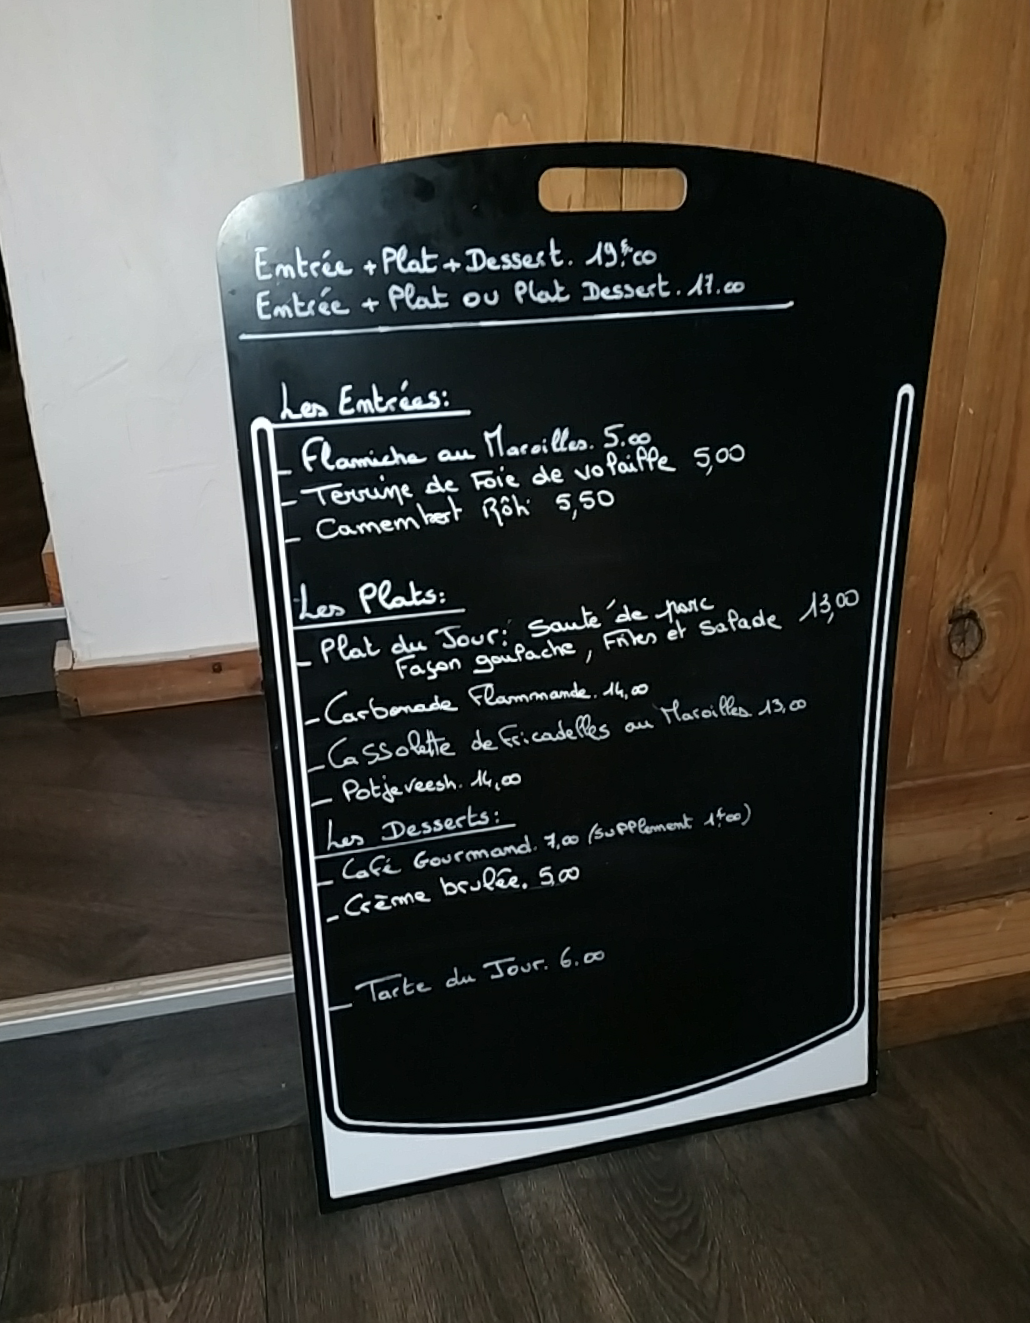 Entrée + Plat + Dessert. 19€00
Entrée + Plat ou Plat Dessert. 17.00
Les Entrées:
- Flamiche au Maroilles. 5.00
- Terrine de Foie de volaille 5,00
- Camembert Rôti 5,50
Les Plats:
- Plat du Jour: Sauté de porc
Façon goulache, Frites et Salade 13,00
- Carbonade Flammande. 14,00
- Cassolette de Fricadelles au Maroilles 13,00
- Potjeveesh. 14,00
Les Desserts:
- Café Gourmand. 7,00 (supplement 1€00)
- Crème brulée. 5,00
- Tarte du Jour. 6.00